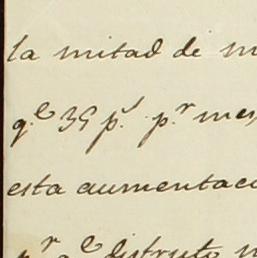 la mitad de m
q.e 35 p.s p.r mes,
esta aumentaci
p.r q.e disfruto n